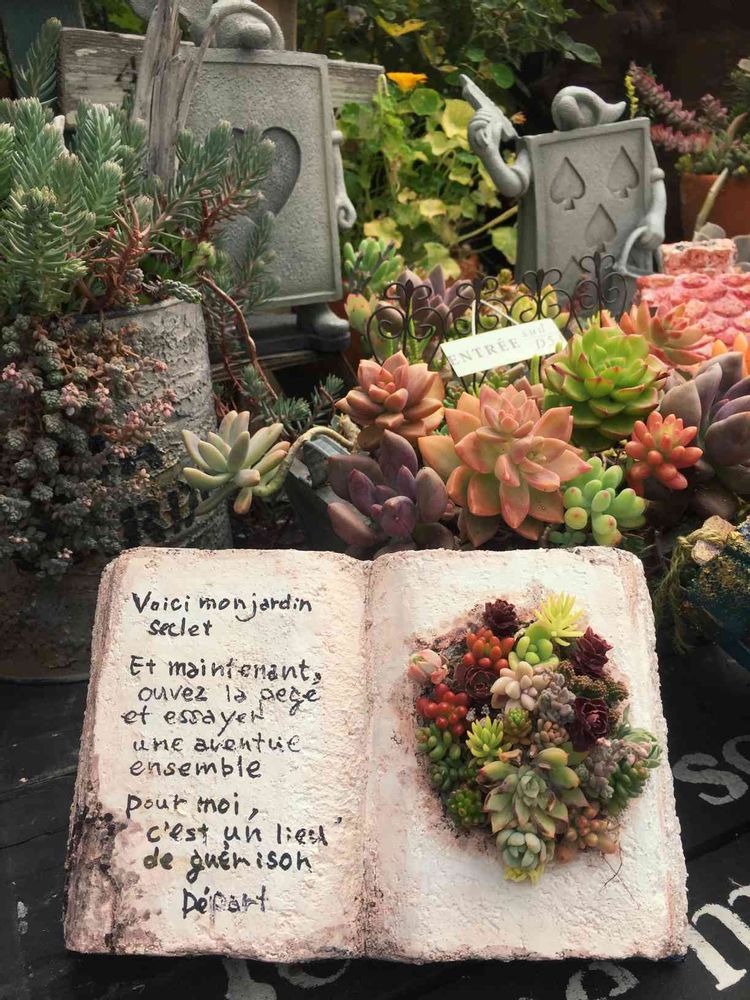 ENTRÉE sud
D5
Voici mon jardin
seclet
Et maintenant,
ouvez la pege
et essayer
une aventue
ensemble
pour moi,
c'est un lieu
de guérison
Départ